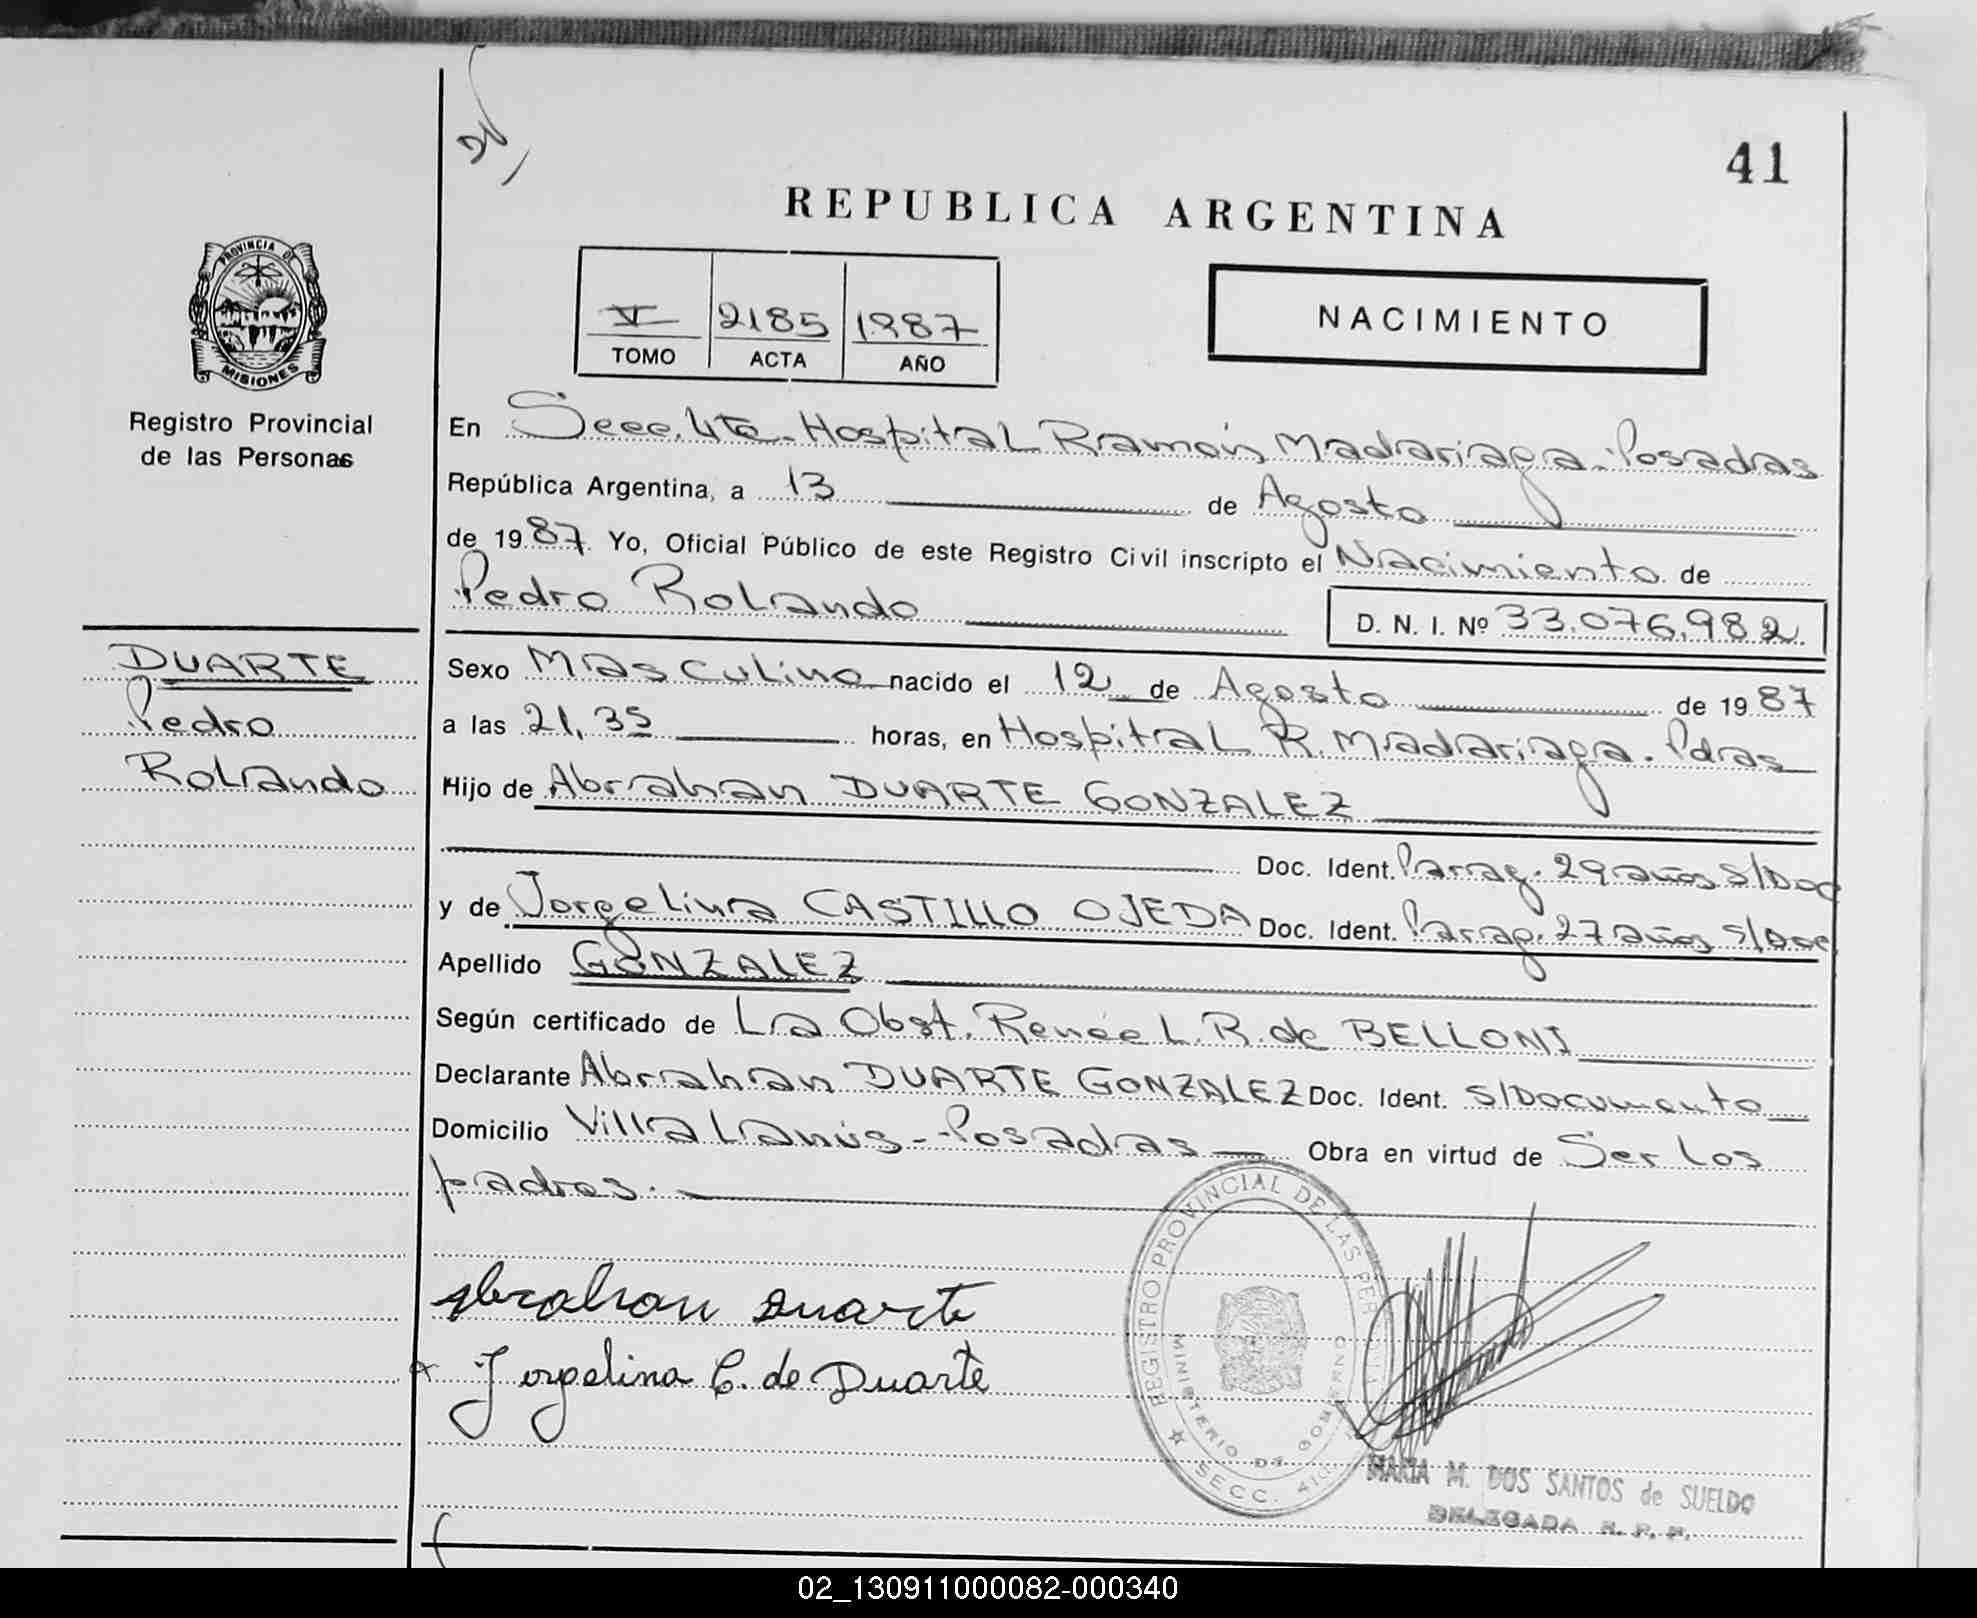 41
REPUBLICA ARGENTINA
V 2185 1987
TOMO ACTA AÑO
NACIMIENTO
PROVINCIA DE
MISIONES
Registro Provincial
de las Personas
En Secc. 4ta. Hospital Ramón Madariaga. Posadas
República Argentina, a 13 de Agosto
de 1987 Yo, Oficial Público de este Registro Civil inscripto el Nacimiento de
Pedro Rolando D. N. I. Nº 33.076.982.
DUARTE
Pedro
Rolando
Sexo Masculino nacido el 12 de Agosto de 1987
a las 21,35 horas, en Hospital R. Madariaga. Pdas
Hijo de Abrahan DUARTE GONZALEZ
Doc. Ident. Parag. 29 años S/Doc
y de Jorgelina CASTILLO OJEDA Doc. Ident. Parag. 27 años s/Doc
Apellido GONZALEZ
Según certificado de La Obst. Renée L. R. de BELLONI
Declarante Abrahan DUARTE GONZALEZ Doc. Ident. S/Documento
Domicilio Villa Lanús - Posadas Obra en virtud de Ser los
padres.
Abrahan Duarte
Jorgelina C. de Duarte
REGISTRO PROVINCIAL DE LAS PER
MINISTERIO DE GOBIERNO
SECC. 4
MARIA M. DOS SANTOS de SUELDO
DELEGADA R. P. P.
02_130911000082-000340